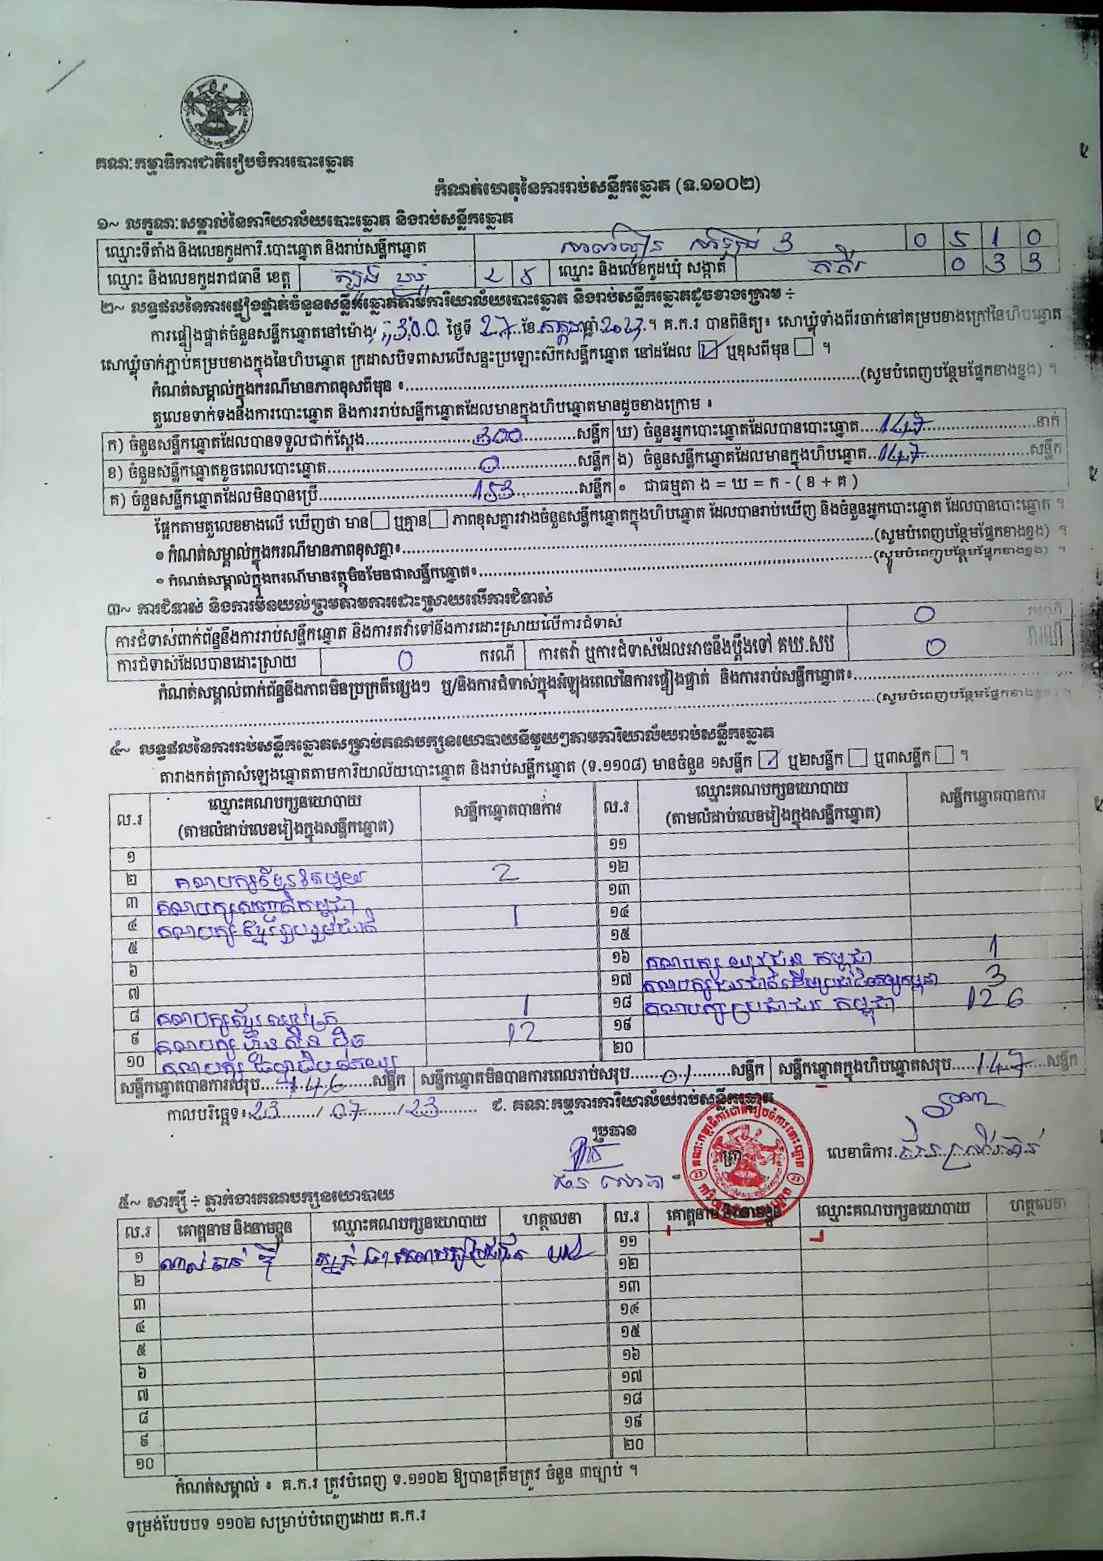 គណៈកម្មាធិការជាតិរៀបចំការបោះឆ្នោត
កំណត់ហេតុនៃការរាប់សន្លឹកឆ្នោត (ទ.១១០២)
១~ លក្ខណៈសម្គាល់នៃការិយាល័យបោះឆ្នោត និងរាប់សន្លឹកឆ្នោត
ឈ្មោះទីតាំង និងលេខកូដការិ.បោះឆ្នោត និងរាប់សន្លឹកឆ្នោត 3 0 5 1 0
ឈ្មោះ និងលេខកូដរាជធានី ខេត្ត ត្បូងឃ្មុំ 2 5 ឈ្មោះ និងលេខកូដឃុំ សង្កាត់ 0 3 3
២~ លទ្ធផលនៃការផ្ទៀងផ្ទាត់ចំនួនសន្លឹកឆ្នោតតាមការិយាល័យបោះឆ្នោត និងរាប់សន្លឹកឆ្នោតដូចខាងក្រោម ÷
ការផ្ទៀងផ្ទាត់ចំនួនសន្លឹកឆ្នោតនៅម៉ោង ថ្ងៃទី ខែ កក្កដា ឆ្នាំ 2023 ។ គ.ក.រ បានពិនិត្យ៖ សោឃ្លុំទាំងពីរចាក់នៅគម្របខាងក្រៅនៃហិបឆ្នោត
សោឃ្លុំចាក់ភ្ជាប់គម្របខាងក្នុងនៃហិបឆ្នោត ក្រដាសបិទពាសលើសន្ទះប្រឡោះស៊កសន្លឹកឆ្នោត នៅដដែល ☑ ឬខុសពីមុន ☐ ។
កំណត់សម្គាល់ក្នុងករណីមានភាពខុសពីមុន ៖ (សូមបំពេញបន្ថែមផ្នែកខាងខ្នង) ។
តួលេខទាក់ទងនឹងការបោះឆ្នោត និងការរាប់សន្លឹកឆ្នោតដែលមានក្នុងហិបឆ្នោតមានដូចខាងក្រោម ៖
ក) ចំនួនសន្លឹកឆ្នោតដែលបានទទួលជាក់ស្តែង 300 សន្លឹក ឃ) ចំនួនអ្នកបោះឆ្នោតដែលបានបោះឆ្នោត 147 នាក់
ខ) ចំនួនសន្លឹកឆ្នោតខូចពេលបោះឆ្នោត 0 សន្លឹក ង) ចំនួនសន្លឹកឆ្នោតដែលមានក្នុងហិបឆ្នោត 147 សន្លឹក
គ) ចំនួនសន្លឹកឆ្នោតដែលមិនបានប្រើ 153 សន្លឹក ជាធម្មតា ង = ឃ = ក - ( ខ + គ )
ផ្អែកតាមតួលេខខាងលើ ឃើញថា មាន ☐ ឬគ្មាន ☐ ភាពខុសគ្នារវាងចំនួនសន្លឹកឆ្នោតក្នុងហិបឆ្នោត ដែលបានរាប់ឃើញ និងចំនួនអ្នកបោះឆ្នោត ដែលបានបោះឆ្នោត ។
កំណត់សម្គាល់ក្នុងករណីមានភាពខុសគ្នា៖ (សូមបំពេញបន្ថែមផ្នែកខាងខ្នង) ។
កំណត់សម្គាល់ក្នុងករណីមានវត្ថុមិនមែនជាសន្លឹកឆ្នោត៖ (សូមបំពេញបន្ថែមផ្នែកខាងខ្នង) ។
៣~ ការជំទាស់ និងការមិនយល់ព្រមតាមការដោះស្រាយលើការជំទាស់
ការជំទាស់ពាក់ព័ន្ធនឹងការរាប់សន្លឹកឆ្នោត និងការតវ៉ាទៅនឹងការដោះស្រាយលើការជំទាស់ 0 ករណី
ការជំទាស់ដែលបានដោះស្រាយ 0 ករណី ការតវ៉ា ឬការជំទាស់ដែលអាចនឹងប្តឹងទៅ គឃ.សប 0 ករណី
កំណត់សម្គាល់ពាក់ព័ន្ធនឹងភាពមិនប្រក្រតីផ្សេងៗ ឬ/និងការជំទាស់ក្នុងអំឡុងពេលនៃការផ្ទៀងផ្ទាត់ និងការរាប់សន្លឹកឆ្នោត៖
(សូមបំពេញបន្ថែមផ្នែកខាងខ្នង) ។
៤~ លទ្ធផលនៃការរាប់សន្លឹកឆ្នោតសម្រាប់គណបក្សនយោបាយនីមួយៗតាមការិយាល័យរាប់សន្លឹកឆ្នោត
តារាងកត់ត្រាសំឡេងឆ្នោតតាមការិយាល័យបោះឆ្នោត និងរាប់សន្លឹកឆ្នោត (ទ.១១០៨) មានចំនួន ១សន្លឹក ☑ ឬ២សន្លឹក ☐ ឬ៣សន្លឹក ☐ ។
ល.រ ឈ្មោះគណបក្សនយោបាយ (តាមលំដាប់លេខរៀងក្នុងសន្លឹកឆ្នោត) សន្លឹកឆ្នោតបានការ ល.រ ឈ្មោះគណបក្សនយោបាយ (តាមលំដាប់លេខរៀងក្នុងសន្លឹកឆ្នោត) សន្លឹកឆ្នោតបានការ
១ ១១
២ 2 ១២
៣ គណបក្សសញ្ជាតិកម្ពុជា ១៣
៤ 1 ១៤
៥ ១៥
៦ ១៦ គណបក្ស យុវជន កម្ពុជា 1
៧ ១៧ 3
៨ 1 ១៨ គណបក្ស ប្រជាជន កម្ពុជា 126
៩ គណបក្ស ហ៊្វុនស៊ិនប៉ិច 12 ១៩
១០ ២០
សន្លឹកឆ្នោតបានការសរុប 146 សន្លឹក សន្លឹកឆ្នោតមិនបានការពេលរាប់សរុប 01 សន្លឹក សន្លឹកឆ្នោតក្នុងហិបឆ្នោតសរុប 147 សន្លឹក
កាលបរិច្ឆេទ៖ 23 / 07 / 23 ៩. គណៈកម្មការការិយាល័យរាប់សន្លឹកឆ្នោត
ប្រធាន ត្រា លេខាធិការ
៥~ សាក្សី ÷ ភ្នាក់ងារគណបក្សនយោបាយ
ល.រ គោត្តនាម និងនាមខ្លួន ឈ្មោះគណបក្សនយោបាយ ហត្ថលេខា ល.រ គោត្តនាម និងនាមខ្លួន ឈ្មោះគណបក្សនយោបាយ ហត្ថលេខា
១ ១១
២ ១២
៣ ១៣
៤ ១៤
៥ ១៥
៦ ១៦
៧ ១៧
៨ ១៨
៩ ១៩
១០ ២០
កំណត់សម្គាល់ ៖ គ.ក.រ ត្រូវបំពេញ ទ.១១០២ ឱ្យបានត្រឹមត្រូវ ចំនួន ៣ច្បាប់ ។
ទម្រង់បែបបទ ១១០២ សម្រាប់បំពេញដោយ គ.ក.រ